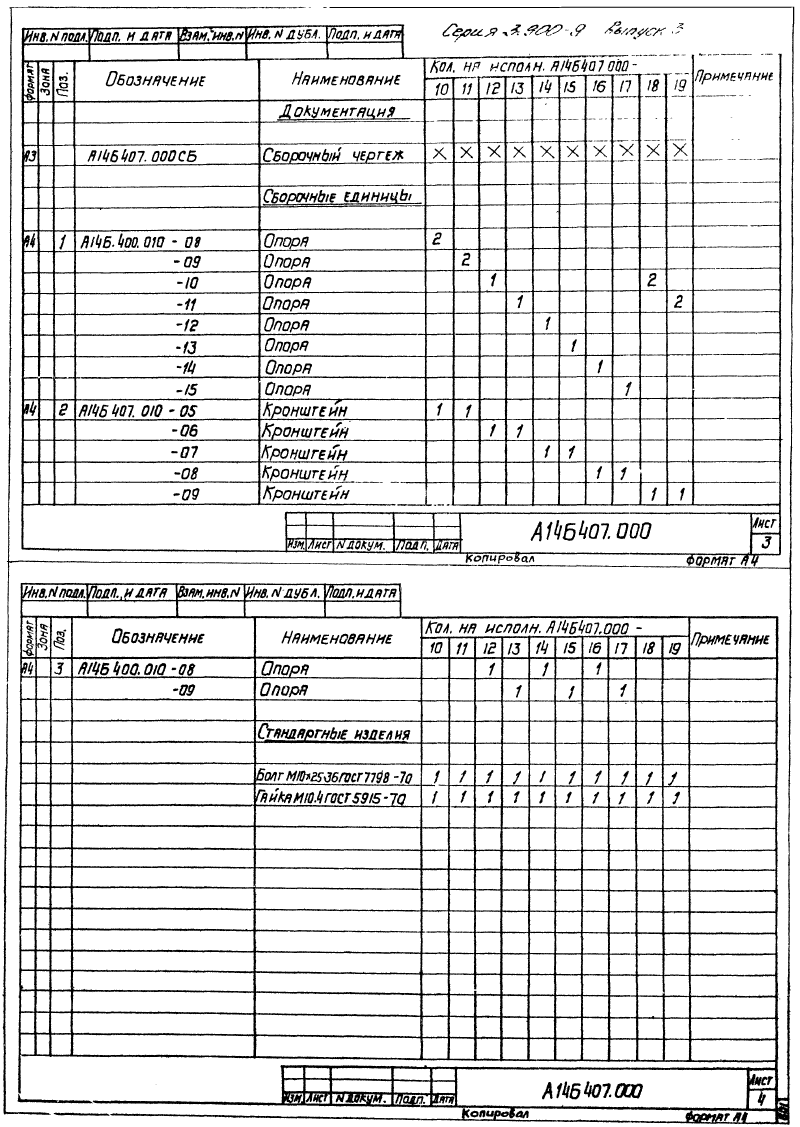 Серия 3.900-9 Выпуск 3
Инв. N подл. Подп. и дата Взам. инв. N Инв. N дубл. Подп. и дата
Формат Зона Поз. Обозначение Наименование Кол. на исполн. А14Б407.000 - Примечание
10 11 12 13 14 15 16 17 18 19
Документация
А3 А14Б407.000СБ Сборочный чертеж X X X X X X X X X X
Сборочные единицы
А4 1 А14Б.400.010 - 08 Опора 2
-09 Опора 2
-10 Опора 1 2
-11 Опора 1 2
-12 Опора 1
-13 Опора 1
-14 Опора 1
-15 Опора 1
А4 2 А14Б407.010 - 05 Кронштейн 1 1
-06 Кронштейн 1 1
-07 Кронштейн 1 1
-08 Кронштейн 1 1
-09 Кронштейн 1 1
Изм. Лист N докум. Подп. Дата А14Б407.000 Лист 3
Копировал Формат А4
Инв. N подл. Подп. и дата Взам. инв. N Инв. N дубл. Подп. и дата
Формат Зона Поз. Обозначение Наименование Кол. на исполн. А14Б407.000 - Примечание
10 11 12 13 14 15 16 17 18 19
А4 3 А14Б400.010 -08 Опора 1 1 1
-09 Опора 1 1 1
Стандартные изделия
Болт М10×25.36 ГОСТ 7798-70 1 1 1 1 1 1 1 1 1 1
Гайка М10.4 ГОСТ 5915-70 1 1 1 1 1 1 1 1 1 1
Изм. Лист N докум. Подп. Дата А14Б407.000 Лист 4
Копировал Формат А4